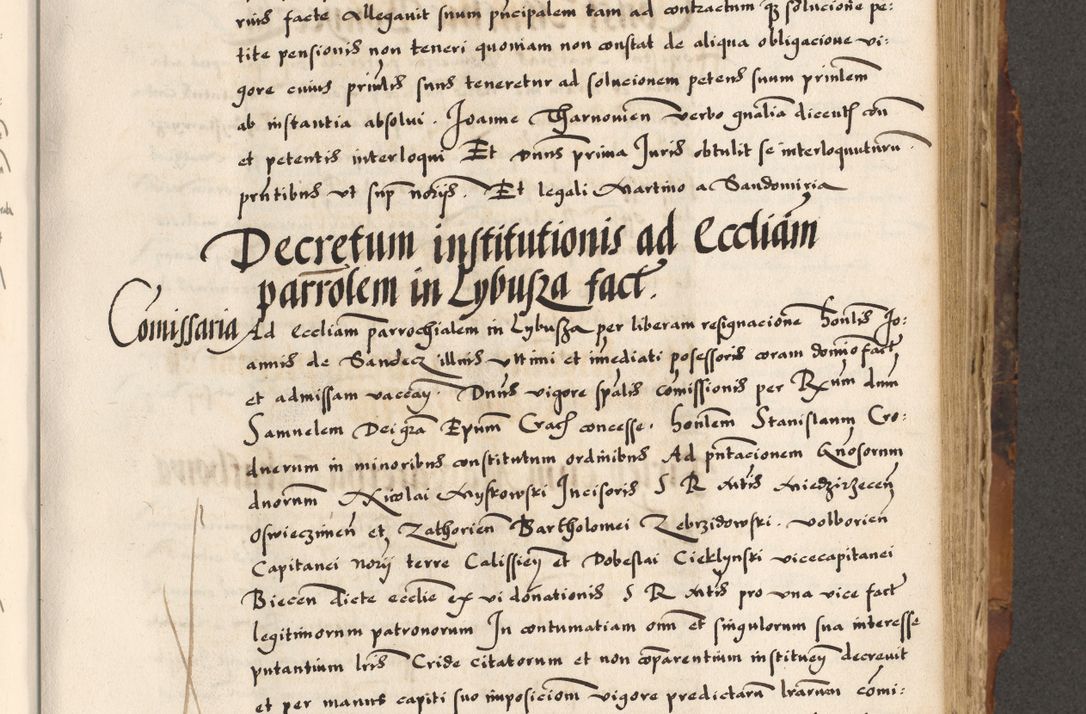 rius facte Allegavit suum pncipalem tam ad contractum q solucione pe:
tite pensionis non teneri quoniam non constat de aliqua obligacione vi:
gore cuius prinlis suus teneretur ad solucionem petens suum prinlem
ab instantia absolui. Joanne Tharnovien verbo gnalia dicente con
et petentis interloqui Et dnus prima Juris obtulit se interloquuturu.
pntibus ut sup noriis. Et legali Martino a Sandomiria
Decretum institutionis ad Eccliam
parrolem in Lybusza fact.
Comissaria Ad Eccliam parrochialem in Lybusza per liberam resignacione Honlis Jo:
annis de Sandecz illius ultimi et imediati posessoris coram domio fact
et admissam vacan. Dnus vigore spalis comissionis per Rxum dnm
Samuelem Dei gra Epum Crac concesse. Honlem Stanislaum Cro:
duerum in minoribus constitutum ordinibus Ad pntacionem Gnosorum
dnorum Nicolai Myskowski Incisoris S R Mtis Miedzirzecen
Oswieczimen et Zathorien Bartholomei Zebrzidowski. Volborien
Capitanei norii terre Calissien et Dobeslai Cieklynski vicecapitanei
Biecen dicte ecclie ex vi donationis S R Mtis pro una vice fact
legitimorum patronorum In contumatiam oim et singulorum sua interesse
putantium lris Cride citatorum et non comparentium instituen decrevit
et per manus capiti suo imposiciom vigore predictaru lrarum comi: